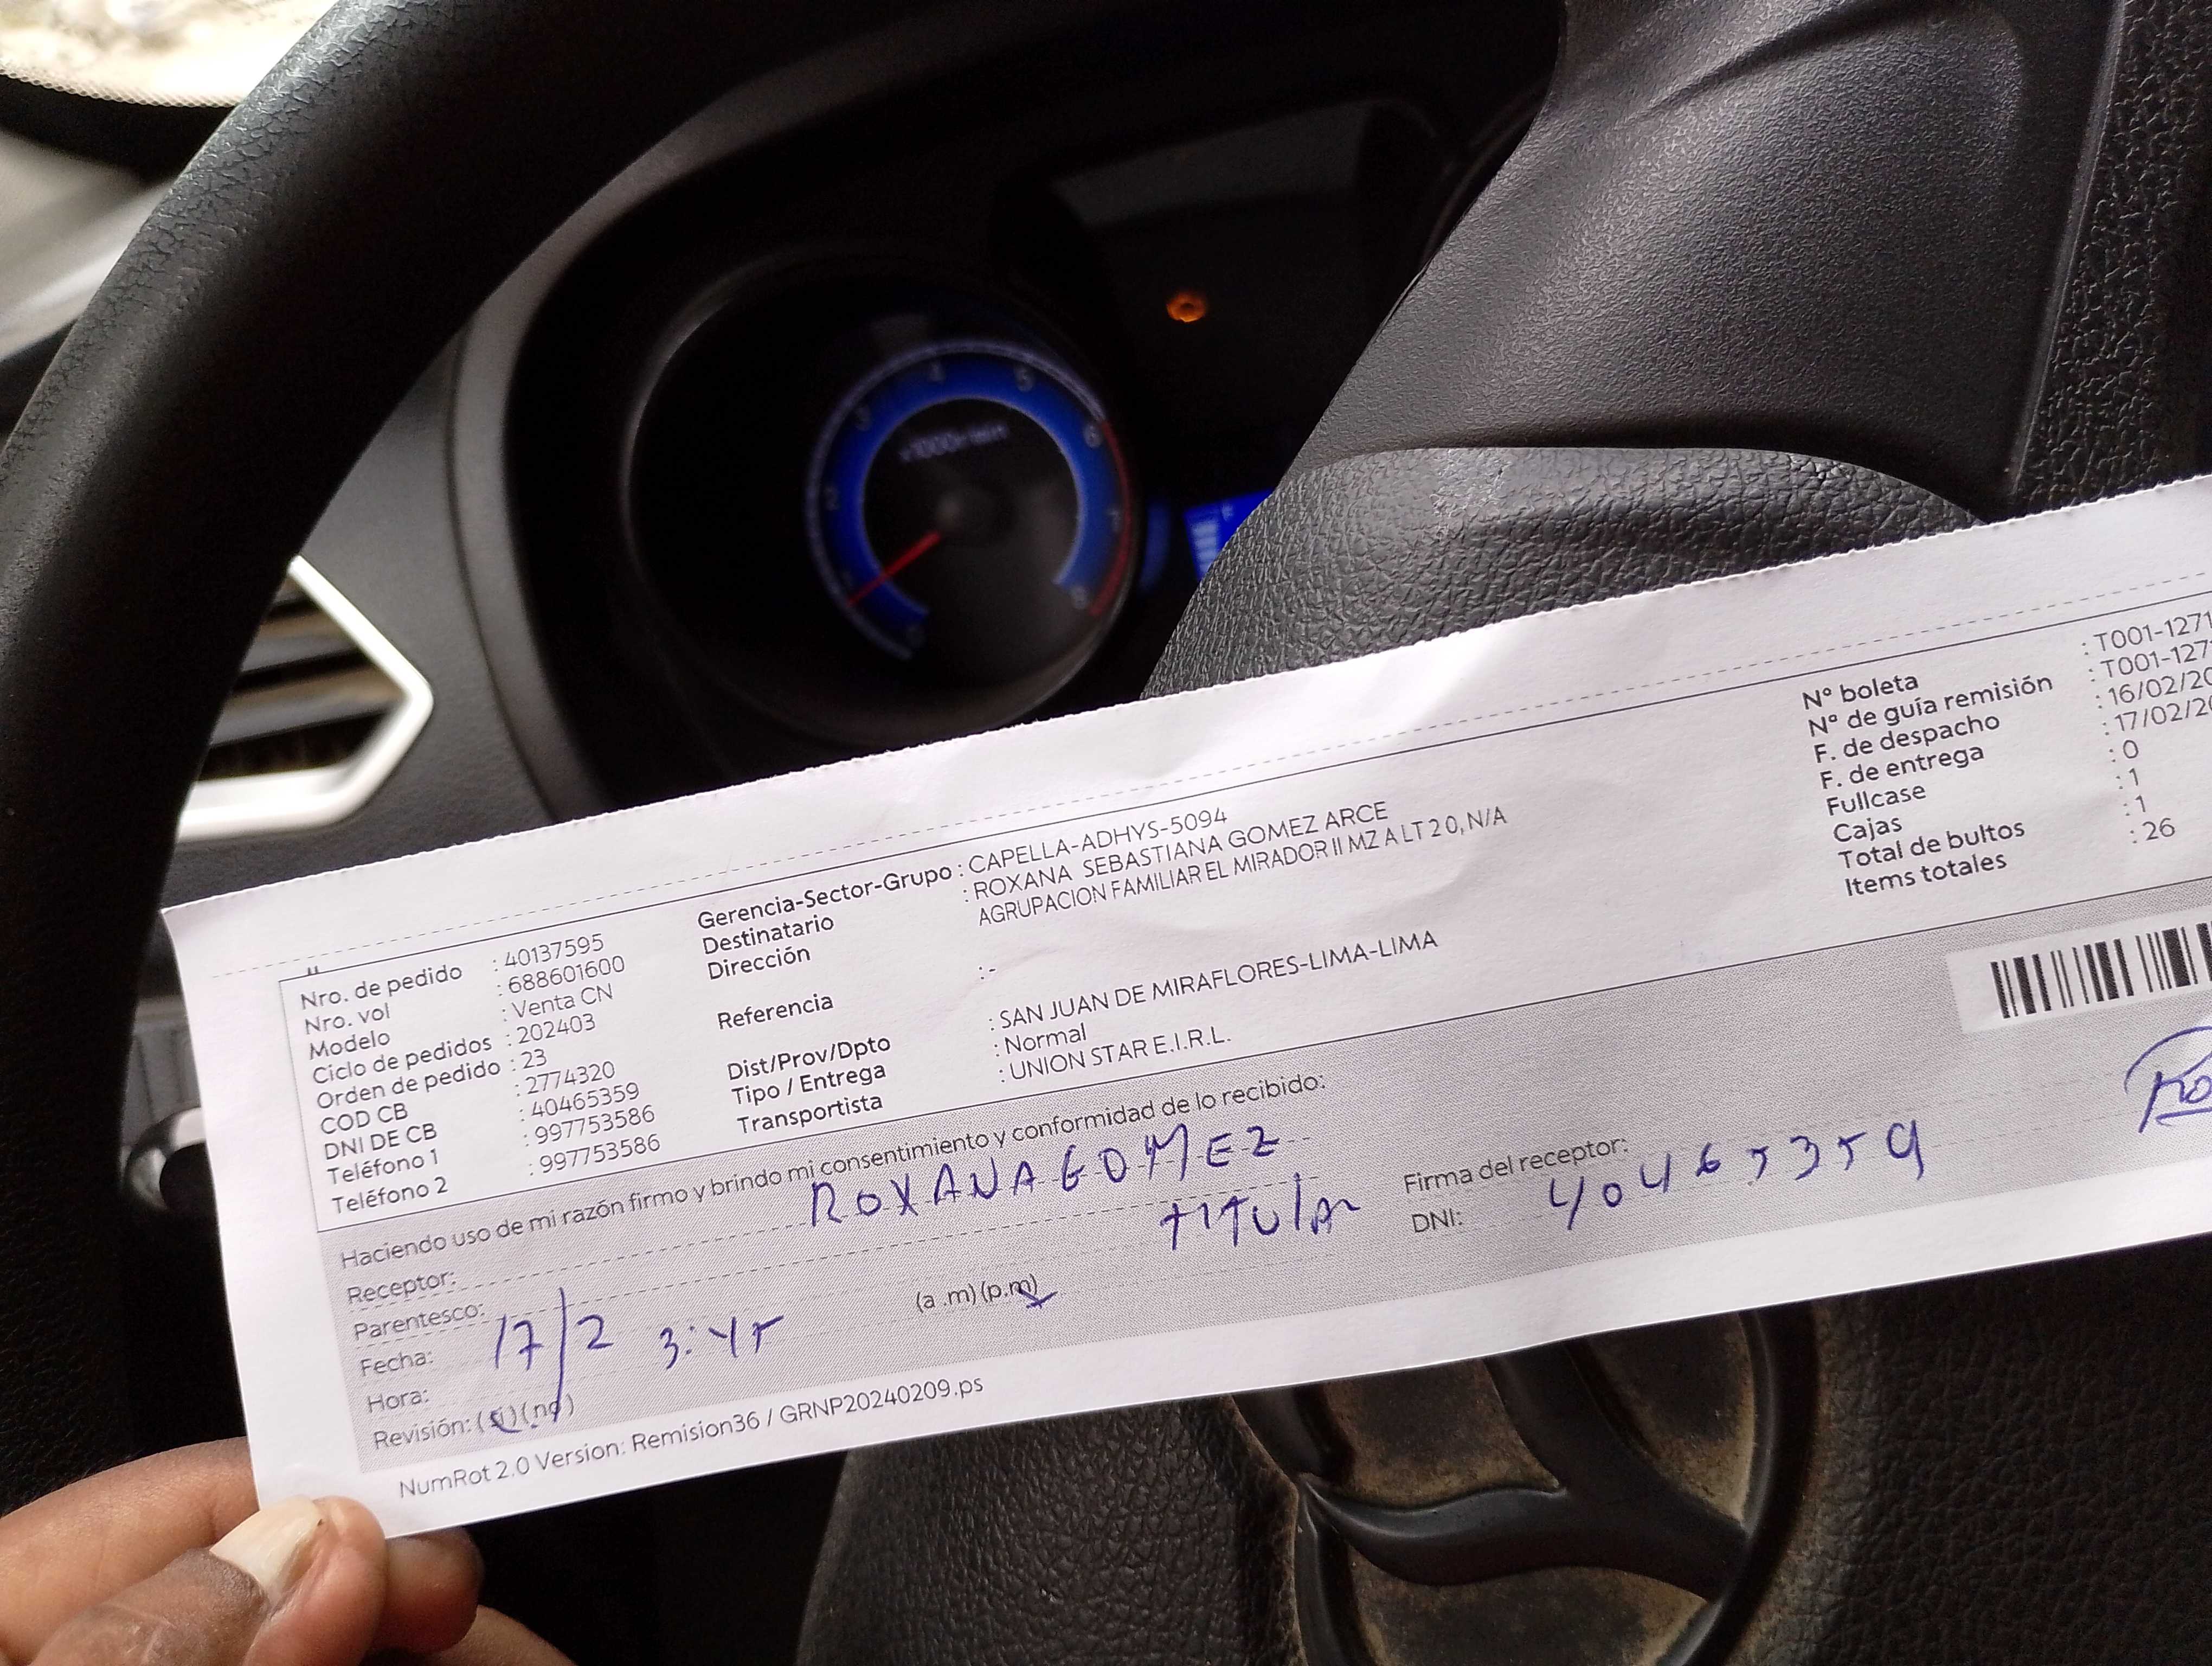 Nro. de pedido : 40137595
Nro. vol : 688601600
Modelo : Venta CN
Ciclo de pedidos : 202403
Orden de pedido : 23
COD CB : 2774320
DNI DE CB : 40465359
Teléfono 1 : 997753586
Teléfono 2 : 997753586
Gerencia-Sector-Grupo : CAPELLA-ADHYS-5094
Destinatario : ROXANA SEBASTIANA GOMEZ ARCE
Dirección AGRUPACION FAMILIAR EL MIRADOR II MZ A LT 2 0, N/A
Referencia :-
Dist/Prov/Dpto : SAN JUAN DE MIRAFLORES-LIMA-LIMA
Tipo / Entrega : Normal
Transportista : UNION STAR E.I.R.L.
N° boleta : T001-1271
N° de guía remisión : T001-127
F. de despacho : 16/02/20
F. de entrega : 17/02/20
Fullcase : 0
Cajas : 1
Total de bultos : 1
Items totales : 26
Haciendo uso de mi razón firmo y brindo mi consentimiento y conformidad de lo recibido:
Receptor: ROXANA GOMEZ
Parentesco: TITULAR
Fecha: 17/2
Hora: 3:45 (a .m) (p.m)
Revisión: (si) (no)
Firma del receptor:
DNI: 40465359
NumRot 2.0 Version: Remision36 / GRNP20240209.ps
x1000r/min
0
1
2
3
4
5
6
7
8